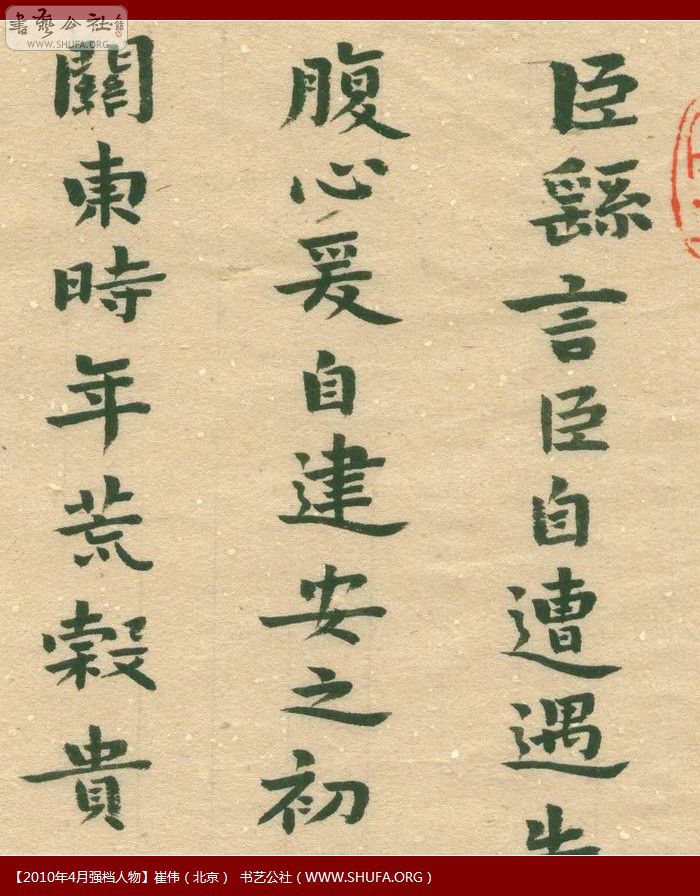 書藝公社
WWW.SHUFA.ORG
臣繇言臣自遭遇
腹心爰自建安之初
關東時年荒穀貴
【2010年4月强档人物】崔伟（北京） 书艺公社（WWW.SHUFA.ORG）